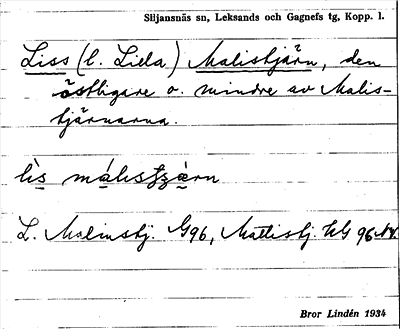 Siljansnäs sn, Leksands och Gagnefs tg, Kopp. l.
Liss (l. Lilla) Malistjärn, den
östligare o. mindre av Malis-
tjärnarna.
lìs málistjæ̀rn
L. Malinstj. G96, Mattistj. HG 96 NV.
Bror Lindén 1934